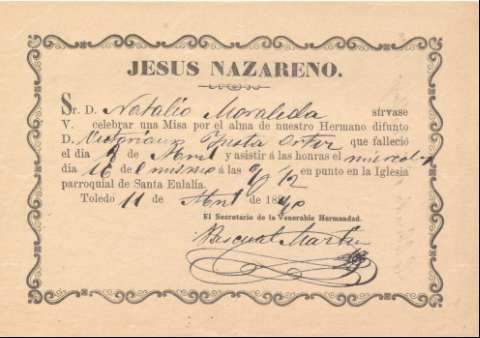 JESUS NAZARENO.
Sr. D. Natalio Moraleda sírvase
V. celebrar una Misa por el alma de nuestro Hermano difunto
D. Victoriano Justa Ortiz que falleció
el dia de Abril y asistir á las honras el miercoles
dia 16 del mismo á las 9 y 1/2 en punto en la Iglesia
parroquial de Santa Eulalia.
Toledo 11 de Abril de 1890
El Secretario de la Venerable Hermandad.
Pascual Martin